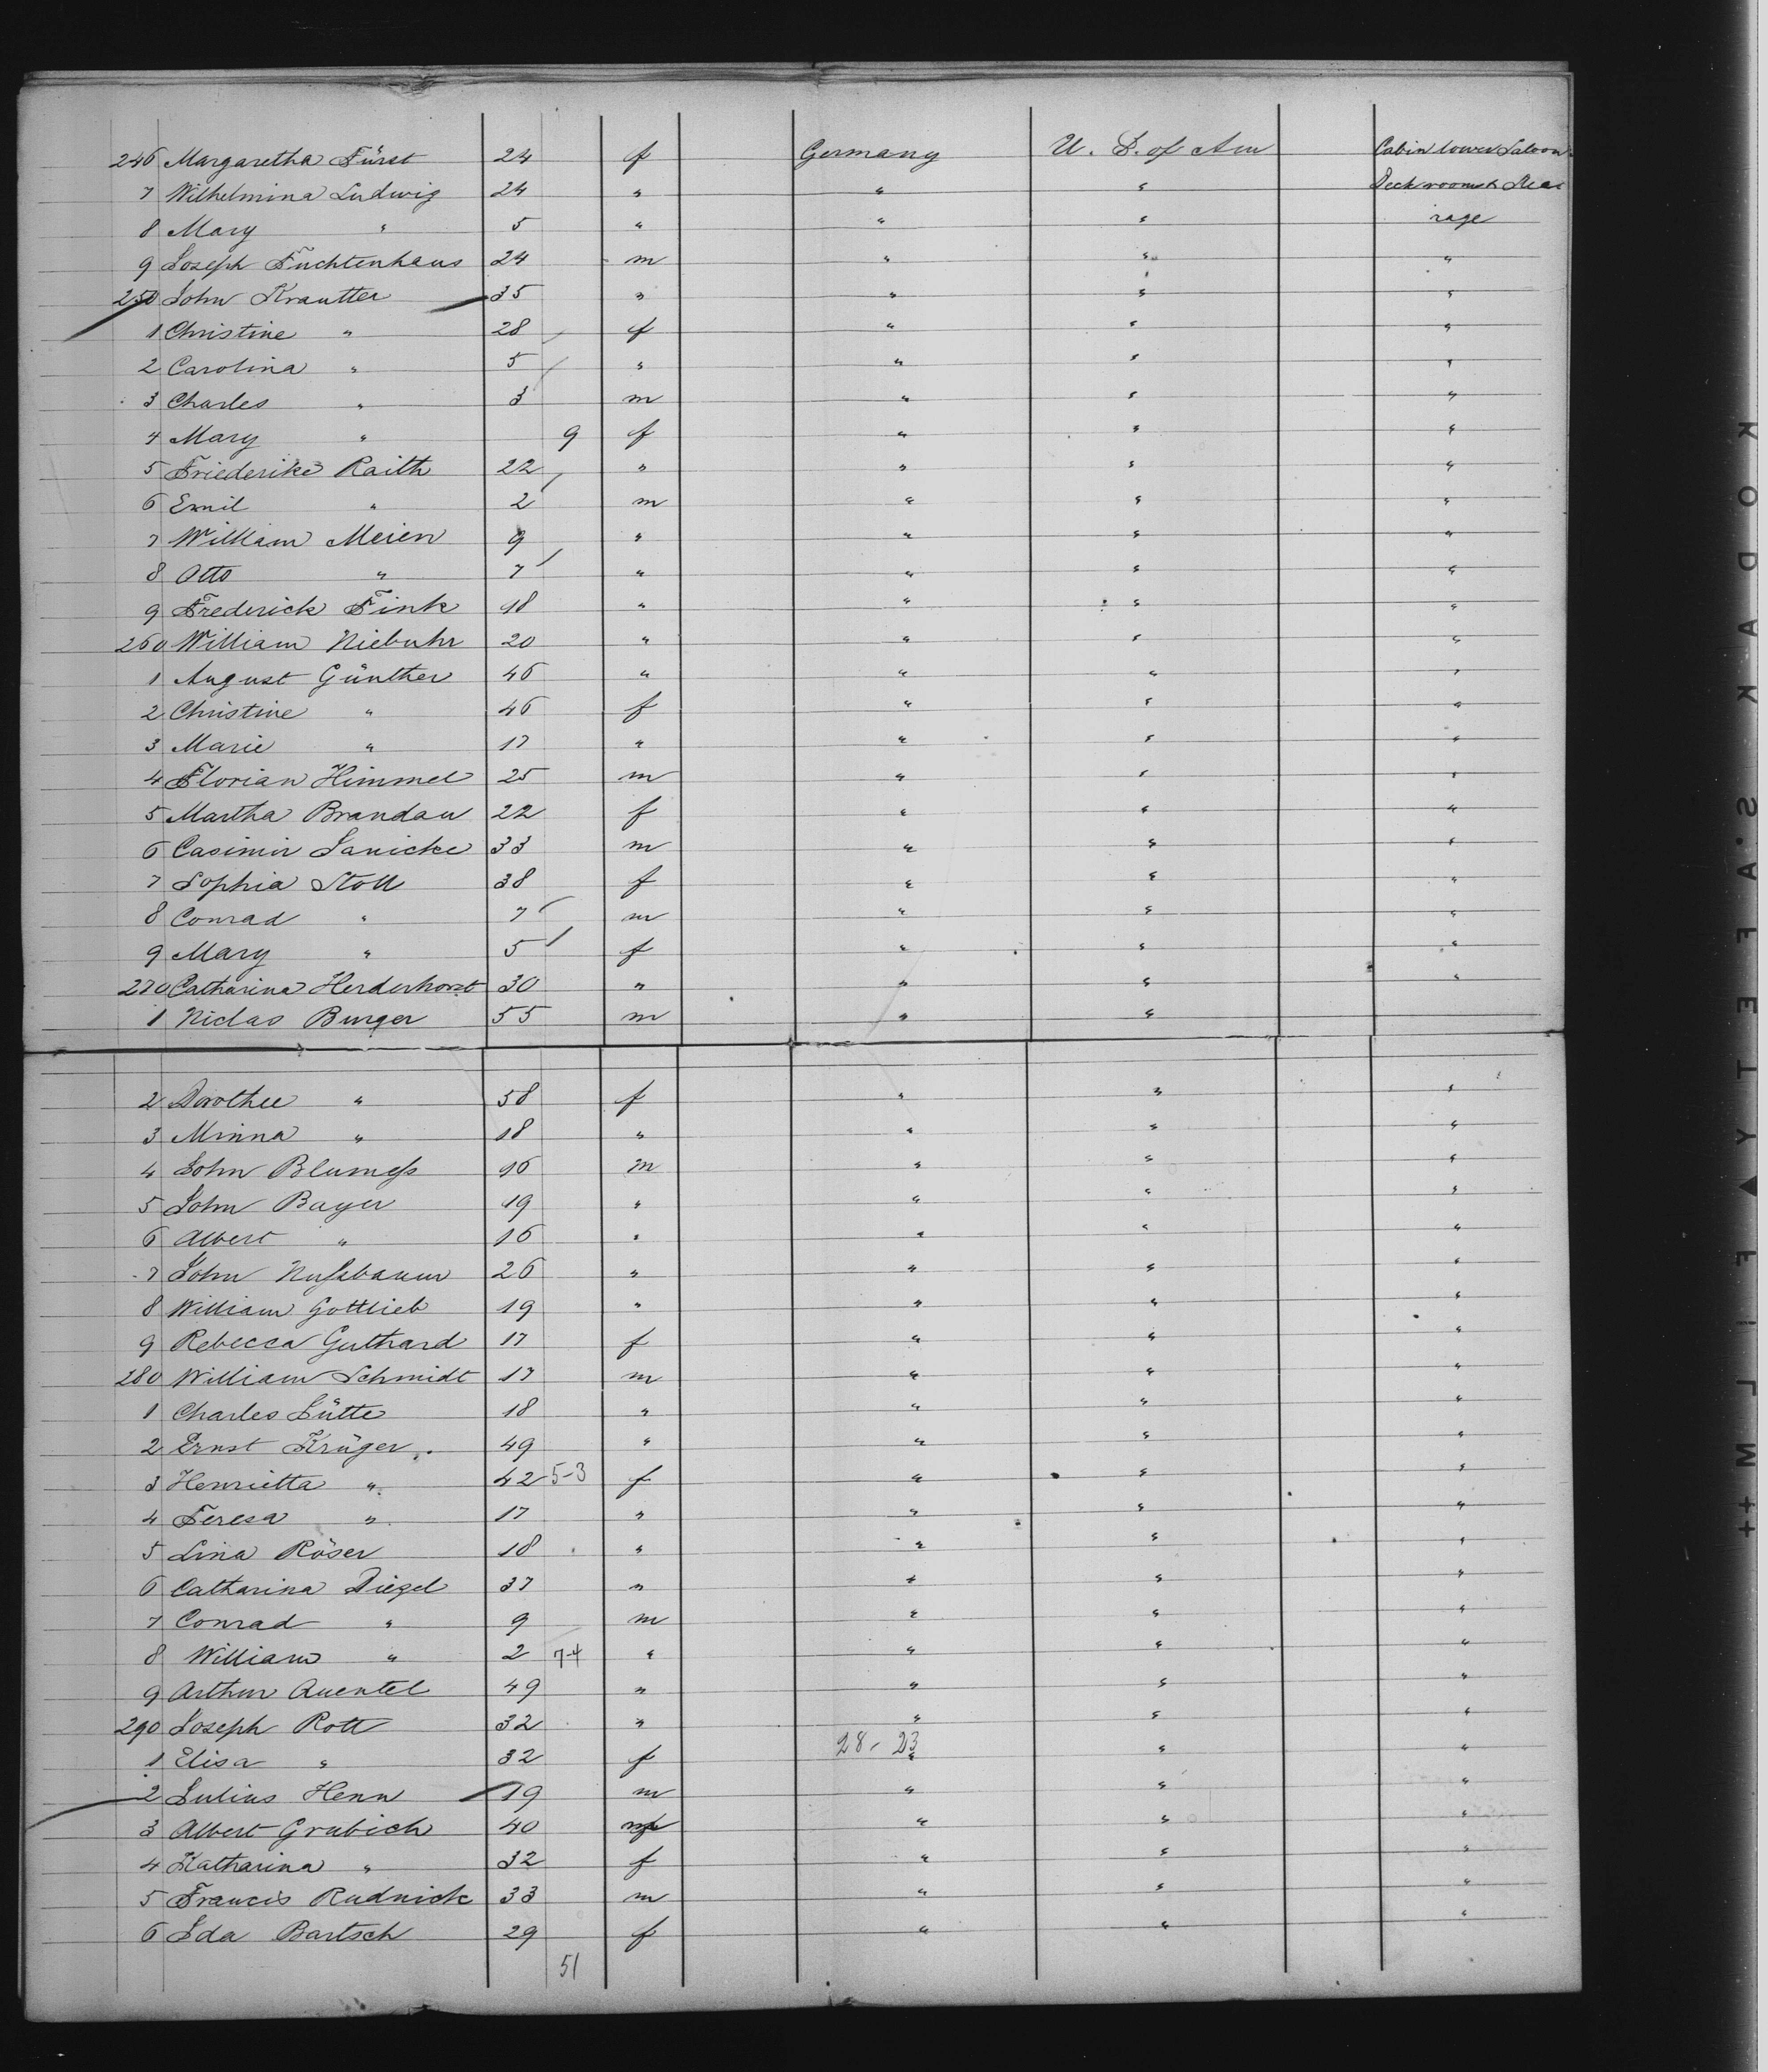 246 Margaretha Fürst 24 f Germany U. S. of Am Cabin lower Saloon
7 Wilhelmina Ludwig 24 " " " Deck rooms & Stee
8 Mary " 5 " " " rage
9 Joseph Fuchtenhaus 24 m " " "
250 John Krautter 35 " " " "
1 Christine " 28 f " " "
2 Carolina " 5 " " " "
3 Charles " 3 m " " "
4 Mary " 9 f " " "
5 Friederike Raith 22 " " " "
6 Emil " 2 m " " "
7 William Meien 9 " " " "
8 Otto " 7 " " " "
9 Frederick Fink 18 " " " "
260 William Niebuhr 20 " " " "
1 August Günther 46 " " " "
2 Christine " 46 f " " "
3 Marie " 17 " " " "
4 Florian Himmel 25 m " " "
5 Martha Brandau 22 f " " "
6 Casimir Janicke 33 m " " "
7 Sophia Stoll 38 f " " "
8 Conrad " 7 m " " "
9 Mary " 5 f " " "
270 Catharina Herderhorst 30 " " " "
1 Niclas Burger 55 m " "
2 Dorothee " 58 f " " "
3 Minna " 18 " " " "
4 John 16 m " " "
5 John Bayer 19 " " " "
6 Albert " 16 " " " "
7 John Nußbaum 26 " " " "
8 William Gottlieb 19 " " " "
9 Rebecca Guthard 17 f " " "
280 William Schmidt 17 m " " "
1 Charles Lütte 18 " " " "
2 Ernst Krüger 49 " " " "
3 Henrietta " 42 5-3 f " " "
4 Teresa " 17 " " " "
5 Lina Röser 18 " " " "
6 Catharina Diegel 37 " " " "
7 Conrad " 9 m " " "
8 William " 2 7-4 " " " "
9 Arthur Quentel 49 " " " "
290 Joseph Rott 32 " " " "
1 Elisa " 32 f 28-23 " " "
2 Julius Henn 19 m " " "
3 Albert Grubich 40 m " " "
4 Katharina " 32 f " " "
5 Francis Rudnick 33 m " " "
6 Ida Bartsch 29 f " " "
51
KODAK S.A.FETY ▲ FILM ++